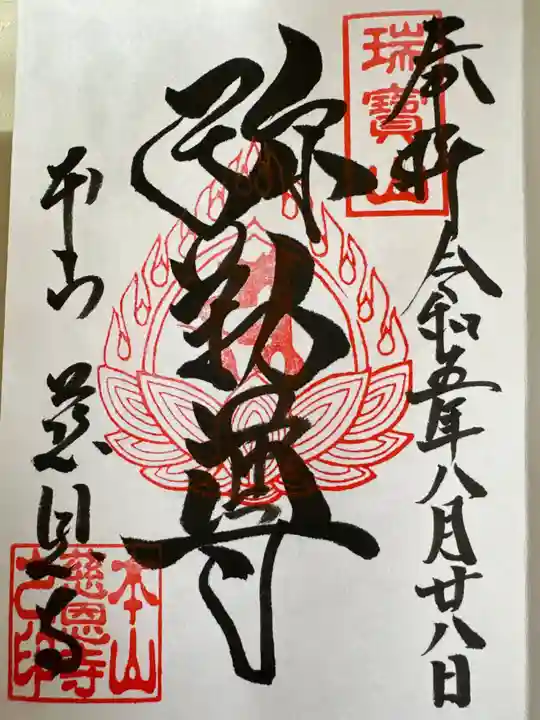 奉拝
瑞寶山
令和五年八月廿八日
弥勒尊
本山
慈恩寺
本山
慈恩寺
之印